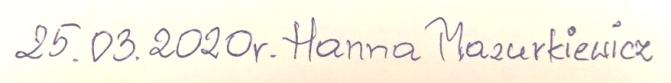 25.03.2020r. Hanna Mazurkiewicz